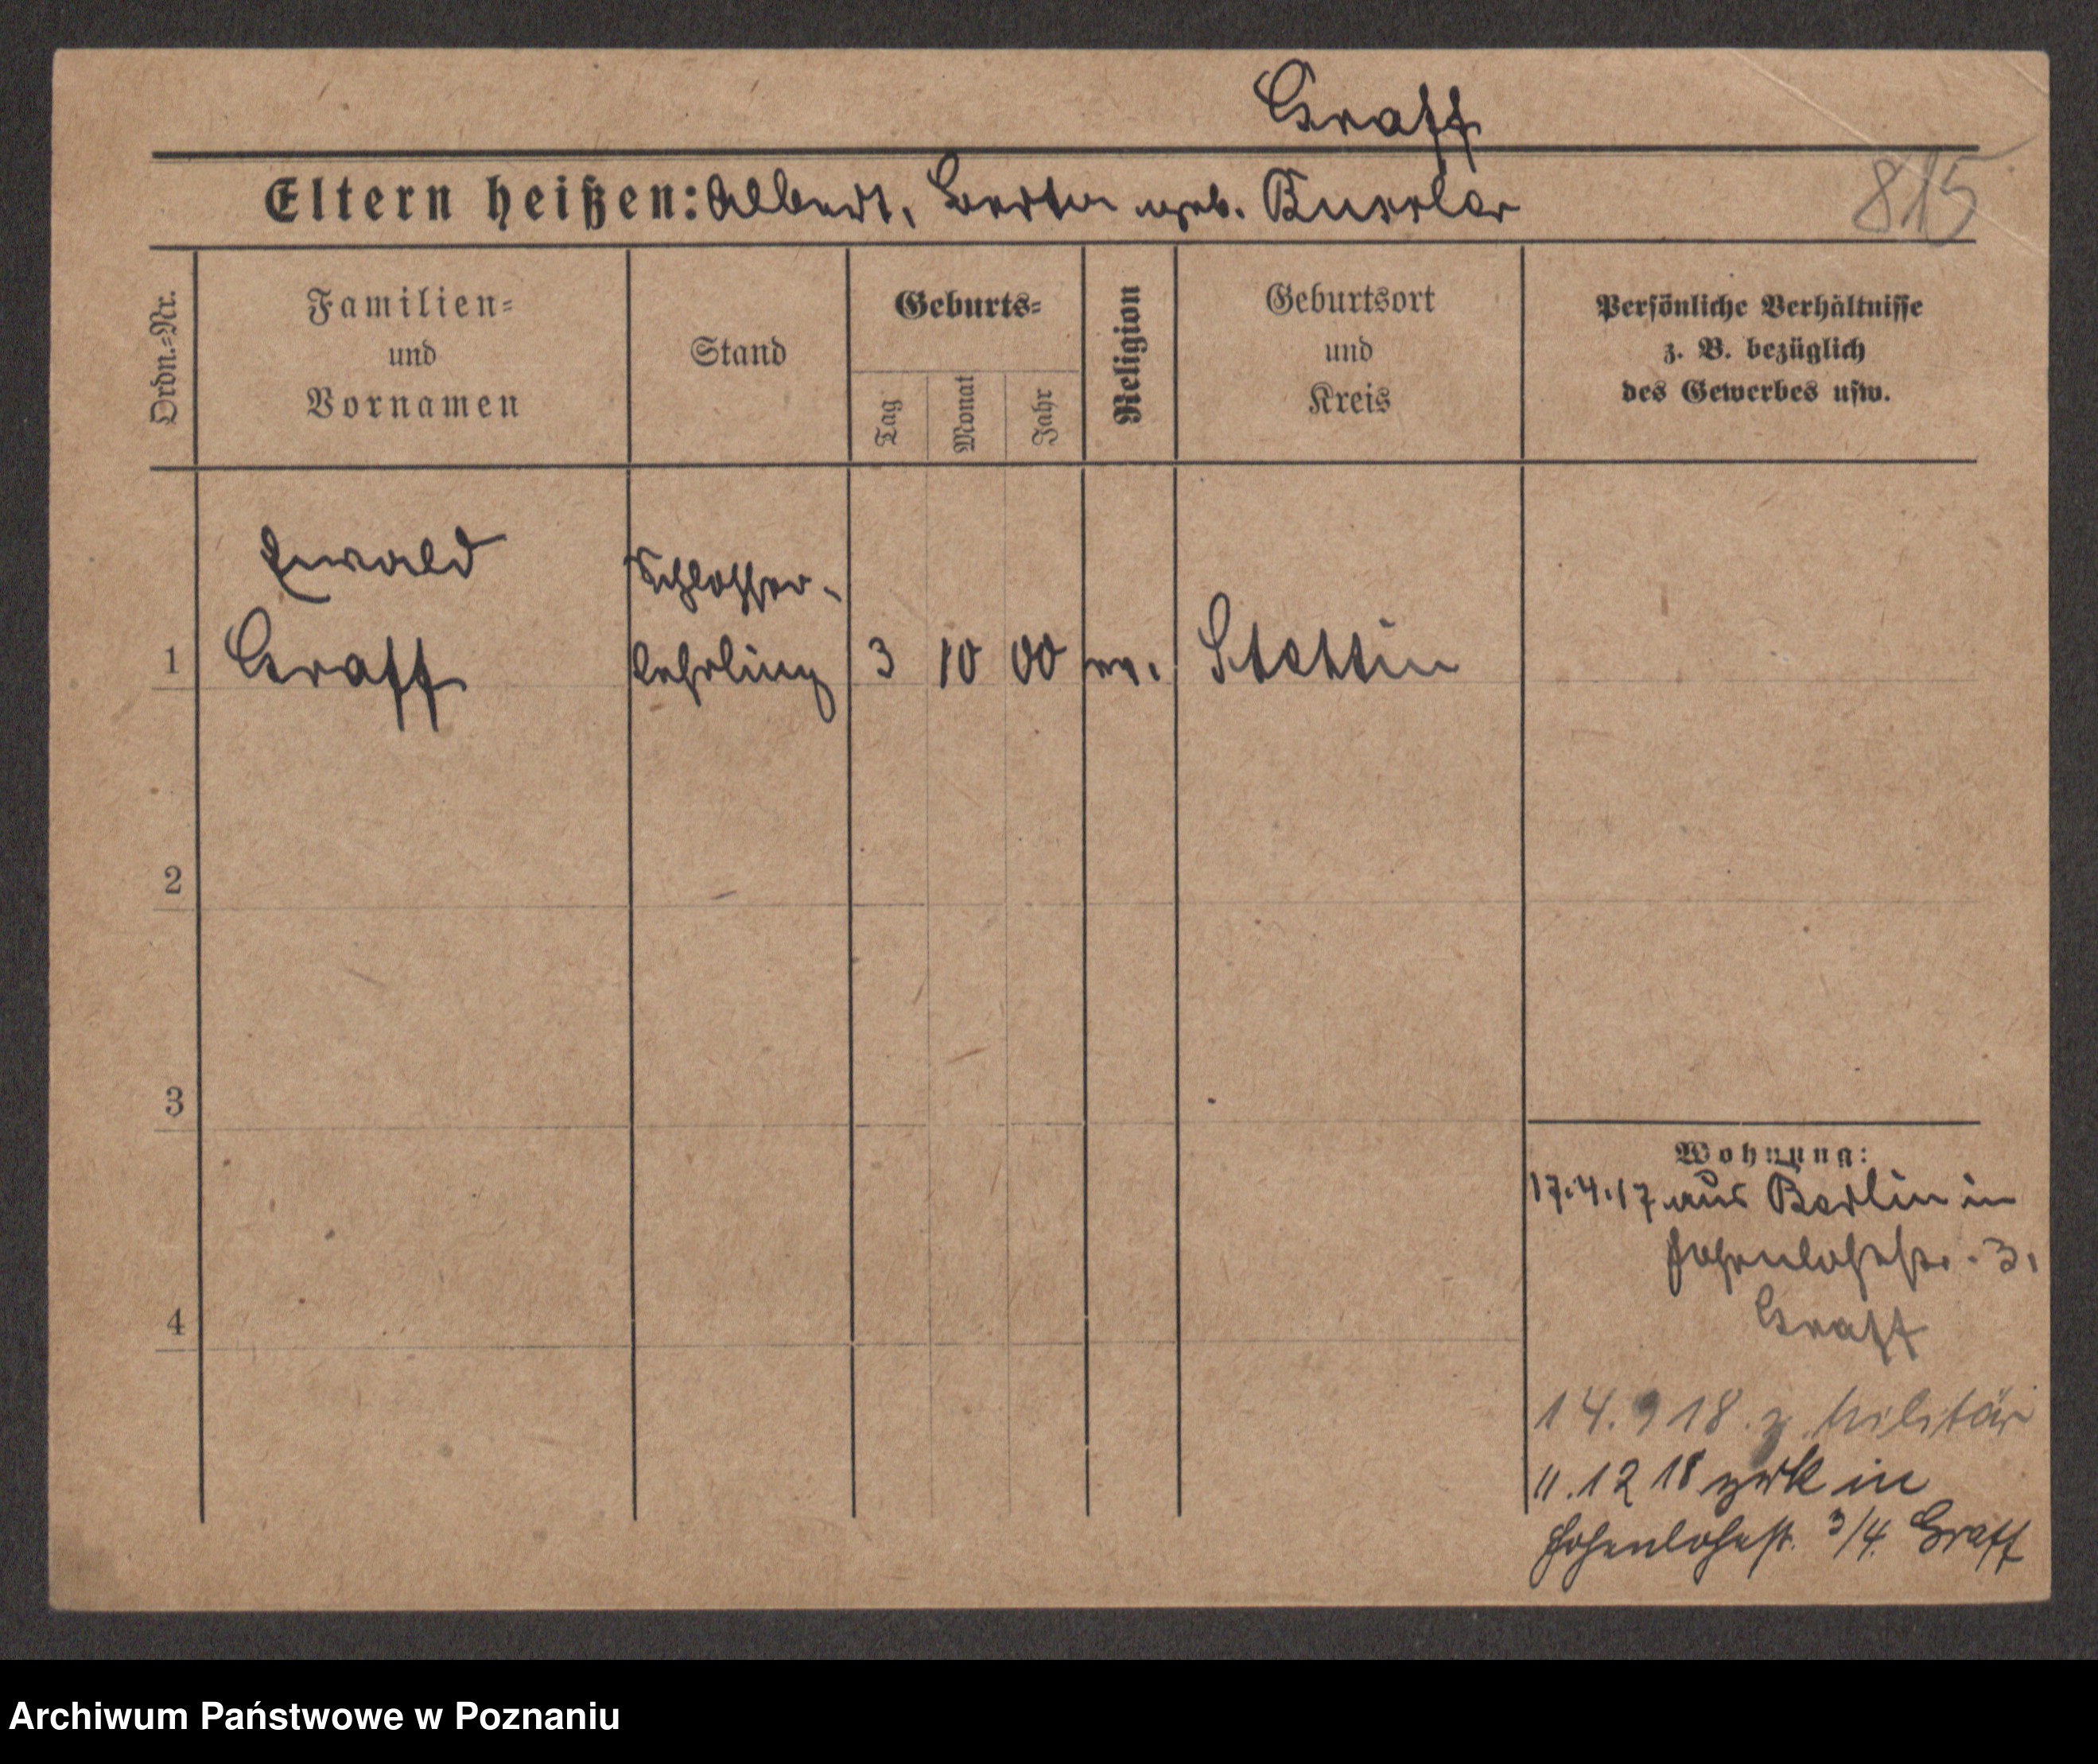 Graff
Eltern heißen: Albert, Berta geb. Bussler
815
Ordn.-Nr.
Familien-
und
Vornamen
Stand
Geburts-
Tag
Monat
Jahr
Religion
Geburtsort
und
Kreis
Persönliche Verhältnisse
z. B. bezüglich
des Gewerbes usw.
Ewald
Schlosser-
1 Graff lehrling 3 10 00 ev. Stettin
2
3
4
Wohnung:
17.4.17 aus Berlin in
Hohenlohestr. 3.
Graff
14.9 18. z. Militär
11.12 18 zurk in
Hohenlohest. 3/4. Graff
Archiwum Państwowe w Poznaniu